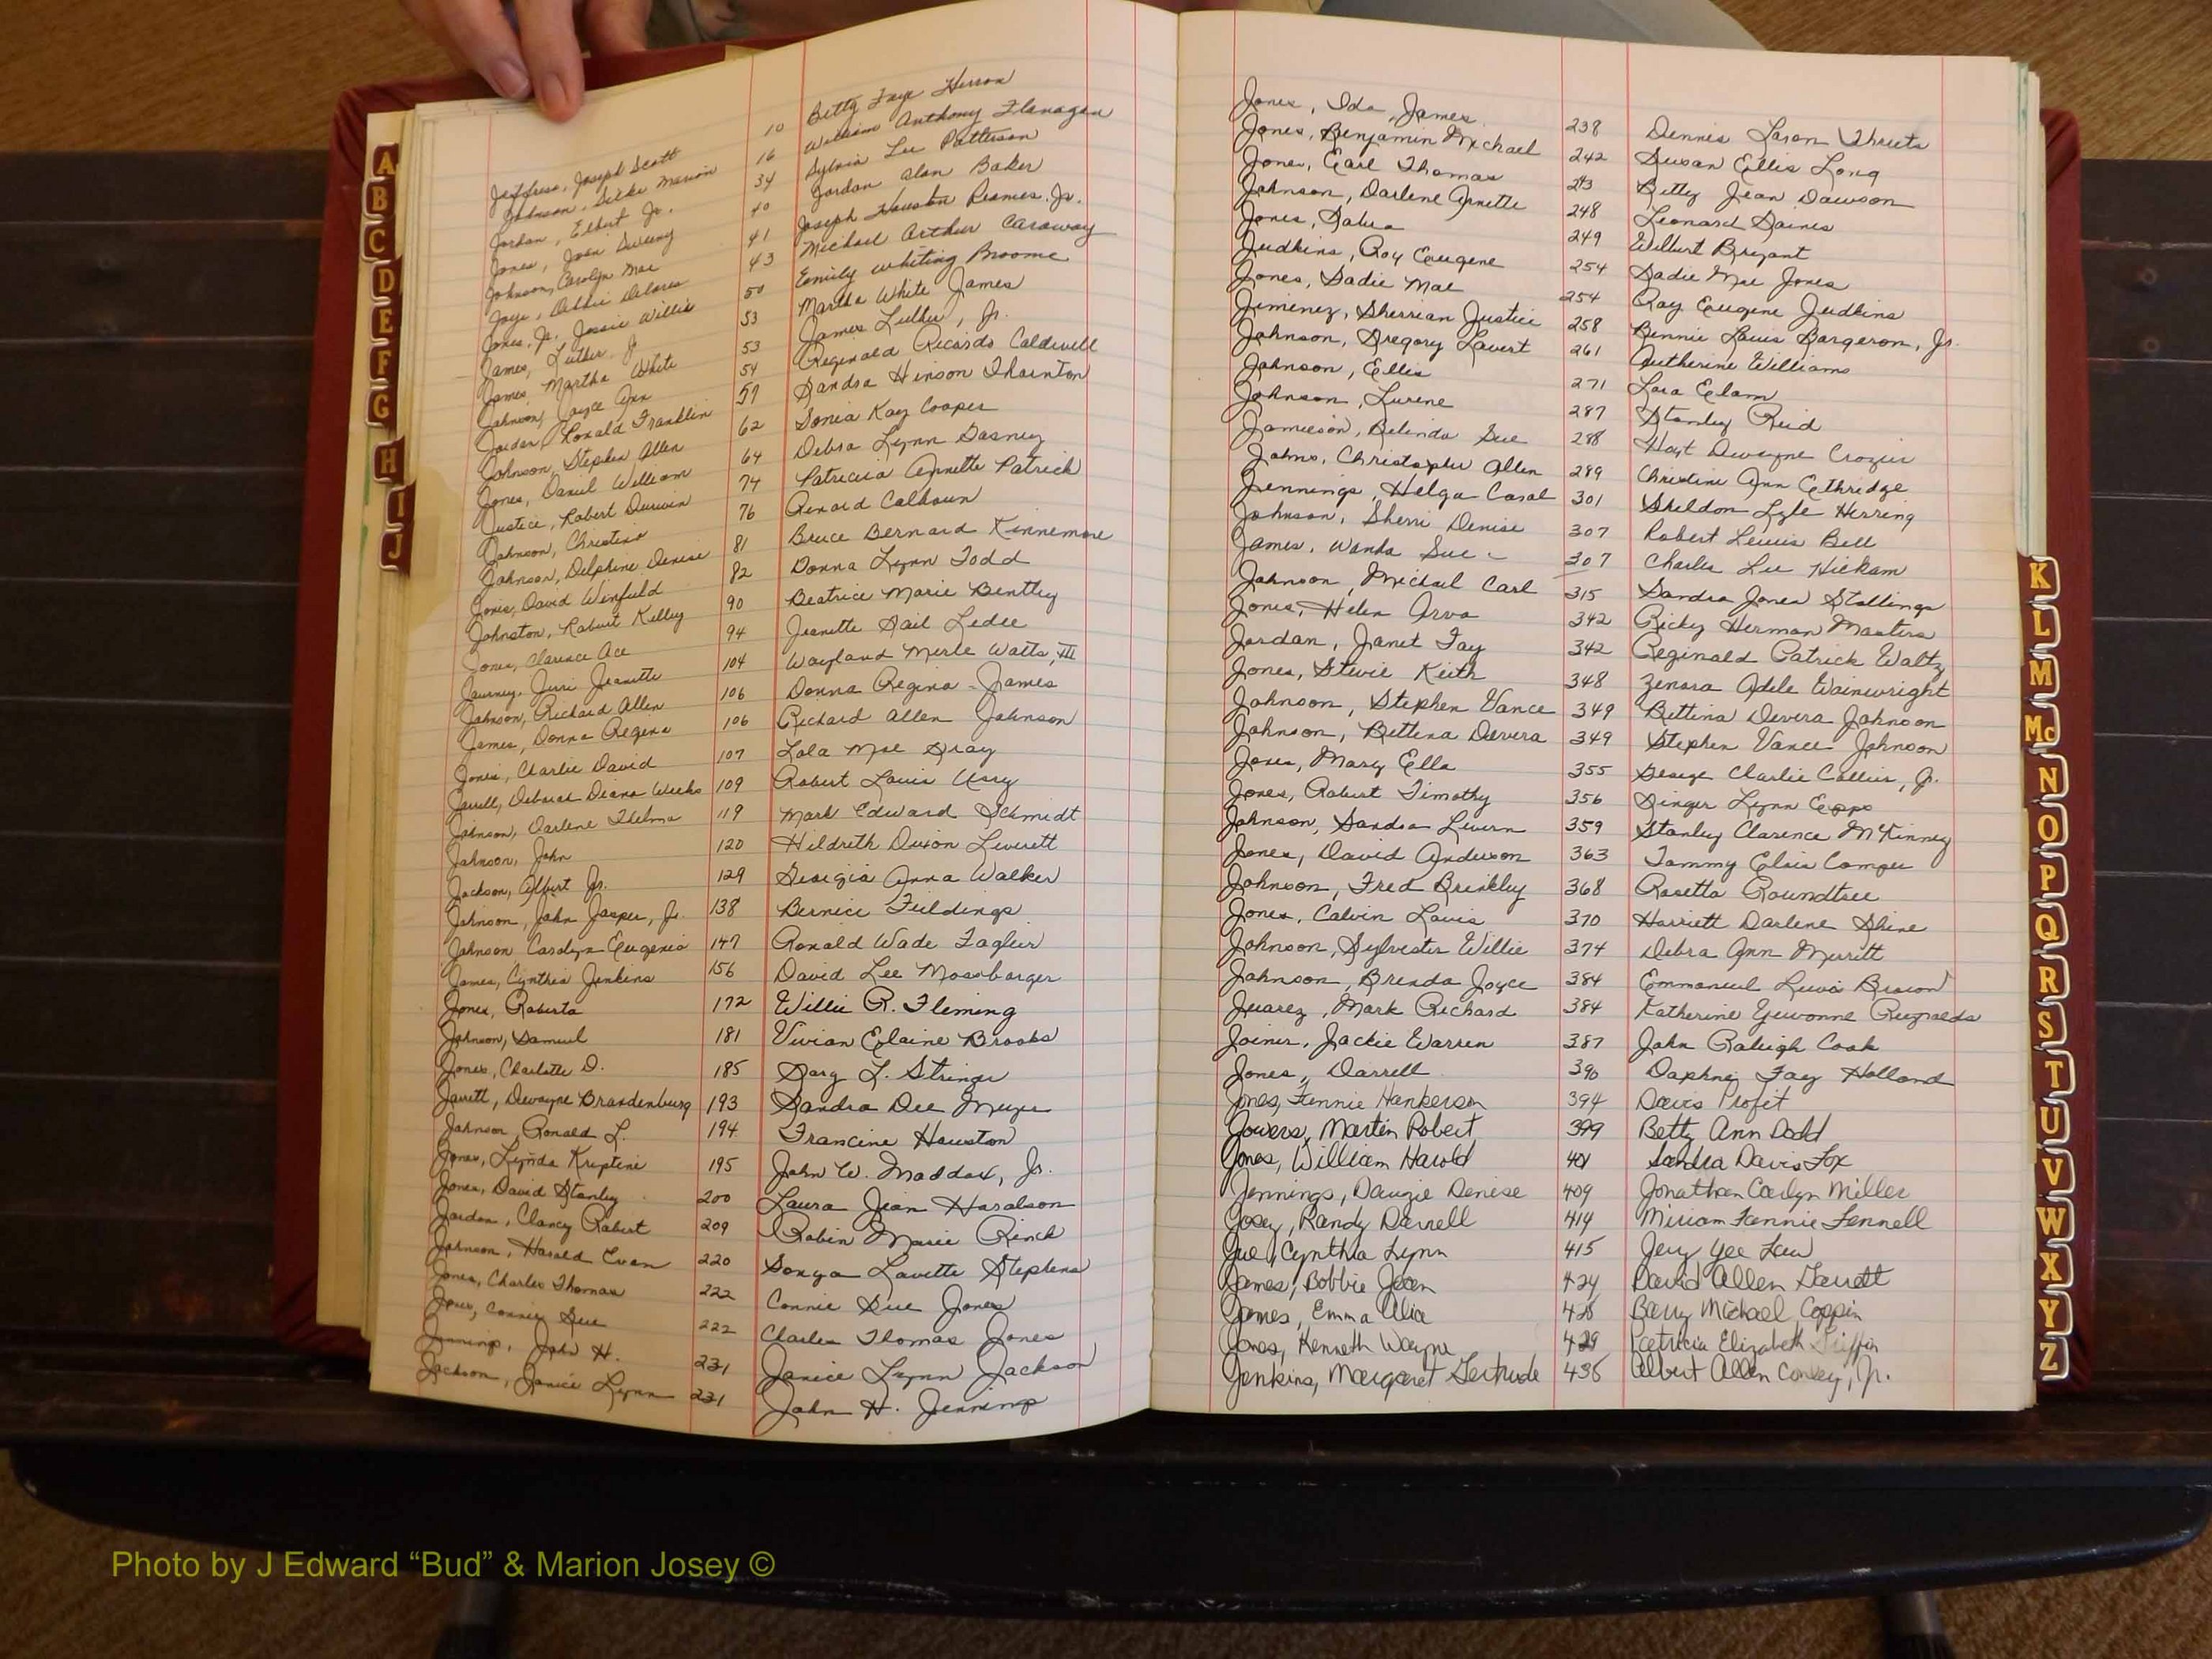 Jeffress, Joseph Scott 10 Betty Faye Herron
Johnson, Silke Marion 16 William Anthony Flanagan
Jordan, Elbert Jr. 34 Sylvia Lee Patterson
Jones, Joan Sweeny 40 Jordan Alan Baker
Johnson, Carolyn Mae 41 Joseph Houston Reames, Jr.
Joye, Debbie Delores 43 Michael Arthur Caraway
Jones, Jr., Jessie Willie 50 Emily Whiting Broome
James, Luther Jr. 53 Martha White James
James, Martha White 53 James Luther, Jr.
Johnson, Joyce Ann 54 Reginald Ricardo Caldwell
Jordan, Ronald Franklin 57 Sandra Hinson Thornton
Johnson, Stephen Allen 62 Sonia Kay Cooper
Jones, Daniel William 64 Debra Lynn Dasney
Justice, Robert Durwin 74 Patricia Annette Patrick
Johnson, Christine 76 Renard Calhoun
Johnson, Delphine Denise 81 Bruce Bernard Kinnemore
Jones, David Winfield 82 Donna Lynn Todd
Johnston, Robert Kelley 90 Beatrice Marie Bentley
Jones, Clarence Ace 94 Jeanette Gail Ledee
Journey, Jerri Jeanette 104 Wayland Merle Watts, III
Johnson, Richard Allen 106 Donna Regina James
James, Donna Regina 106 Richard Allen Johnson
Jones, Charlie David 107 Lola Mae Gray
Jarrell, Deborah Diana Weeks 109 Robert Louis Usry
Johnson, Darlene Thelma 119 Mark Edward Schmidt
Johnson, John 120 Hildreth Dixon Leverett
Jackson, Albert Jr. 129 Georgia Anna Walker
Johnson, John Jasper, Jr. 138 Bernice Fieldings
Johnson Carolyn Eugenia 147 Ronald Wade Faglier
James, Cynthia Jenkins 156 David Lee Mossbarger
Jones, Roberta 172 Willie R. Fleming
Johnson, Samuel 181 Vivian Elaine Brooks
Jones, Charlotte D. 185 Gary L. Stringer
Jarrett, Dewayne Brandenburg 193 Sandra Dee Meyer
Johnson, Ronald L. 194 Francine Houston
Jones, Lynda Kristine 195 John W. Maddox, Jr.
Jones, David Stanley 200 Laura Jean Haralson
Jordan, Clancy Robert 209 Robin Marie Rinck
Johnson, Harold Evan 220 Sonya Lavette Stephens
Jones, Charles Thomas 222 Connie Sue Jones
Jones, Connie Sue 222 Charles Thomas Jones
Jennings, John H. 231 Janice Lynn Jackson
Jackson, Janice Lynn 231 John H. Jennings
Jones, Ida James 238 Dennis Leron Threets
Jones, Benjamin Michael 242 Susan Ellis Long
Jones, Earl Thomas 243 Betty Jean Dawson
Johnson, Darlene Annette 248 Leonard Gaines
Jones, Salua 249 Wilbert Bryant
Judkins, Roy Eugene 254 Sadie Mae Jones
Jones, Sadie Mae 254 Roy Eugene Judkins
Jimenez, Sherrian Justice 258 Bennie Louis Bargeron, Jr.
Johnson, Gregory Lavert 261 Autherine Williams
Johnson, Ellis 271 Lora Elam
Johnson, Lurene 287 Stanley Reid
Jamieson, Belinda Sue 288 Hoyt Dewayne Crozier
Johns, Christopher Allen 289 Christine Ann Ethridge
Jennings, Helga Casal 301 Sheldon Lyle Herring
Johnson, Sherri Denise 307 Robert Lewis Bell
James, Wanda Sue 307 Charles Lee Hickam
Johnson, Michael Carl 315 Sandra Jones Stallings
Jones, Helen Arva 342 Ricky Herman Masters
Jordan, Janet Fay 342 Reginald Patrick Waltz
Jones, Stevie Keith 348 Zenora Adele Wainwright
Johnson, Stephen Vance 349 Bettina Devera Johnson
Johnson, Bettina Devera 349 Stephen Vance Johnson
Jones, Mary Ella 355 George Charlie Collier, Jr.
Jones, Robert Timothy 356 Ginger Lynn Epps
Johnson, Sandra Levern 359 Stanley Clarence McKinney
Jones, David Anderson 363 Tammy Elsie Comer
Johnson, Fred Brinkley 368 Rosetta Roundtree
Jones, Calvin Louis 370 Harriett Darlene Shine
Johnson, Sylvester Willie 374 Debra Ann Merritt
Johnson, Brenda Joyce 384 Emmanuel Luvoi Brown
Juarez, Mark Richard 384 Katherine Yewonne Reynolds
Joiner, Jackie Warren 387 John Raleigh Cook
Jones, Darrell 390 Daphne Fay Holland
Jones, Fannie Hankerson 394 Davis Profit
Jowers, Martin Robert 399 Betty Ann Dodd
Jones, William Harold 401 Sandra Davis Fox
Jennings, Daugie Denise 409 Jonathan Carlyn Miller
Josey, Randy Darrell 414 Miriam Fannie Fennell
Jue, Cynthia Lynn 415 Jery Yee Lew
James, Bobbie Jean 424 David Allen Garrett
James, Emma Alia 428 Barry Michael Coppin
Jones, Kenneth Wayne 429 Patricia Elizabeth Griffin
Jenkins, Margaret Gertrude 435 Albert Allen Conley, Jr.
A
B
C
D
E
F
G
H
I
J
K
L
M
Mc
N
O
P
Q
R
S
T
U
V
W
X
Y
Z
Photo by J Edward “Bud” & Marion Josey ©